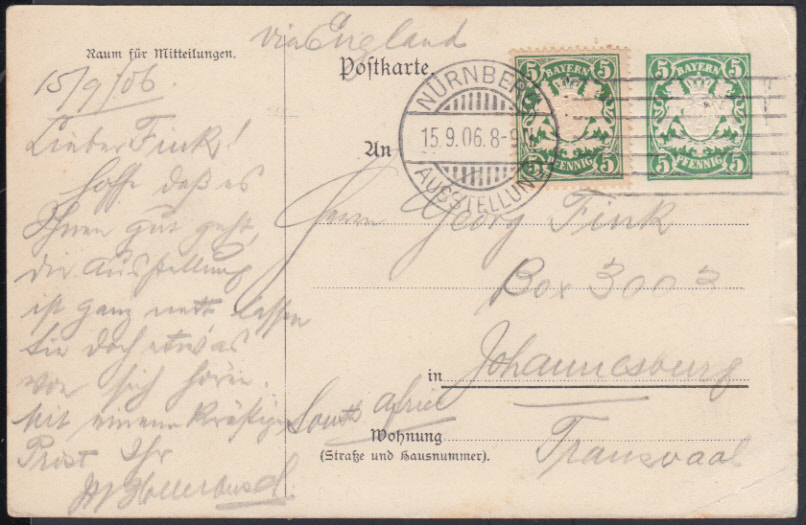 via England
Raum für Mitteilungen.
15/9/06.
Lieber Fink!
hoffe daß es
Ihnen gut geht,
die Ausstellung
ist ganz nett lassen
Sie doch etwas
von sich hören.
Mit einem kräftigen
Prost Ihr
Postkarte.
NÜRNBERG
15.9.06.8-9
AUSSTELLUNG
5 BAYERN 5
5 PFENNIG 5
5 BAYERN 5
5 PFENNIG 5
An
Herrn Georg Fink
Box 3003
in Johannesburg
South Africa
Wohnung
(Straße und Hausnummer).
Transvaal